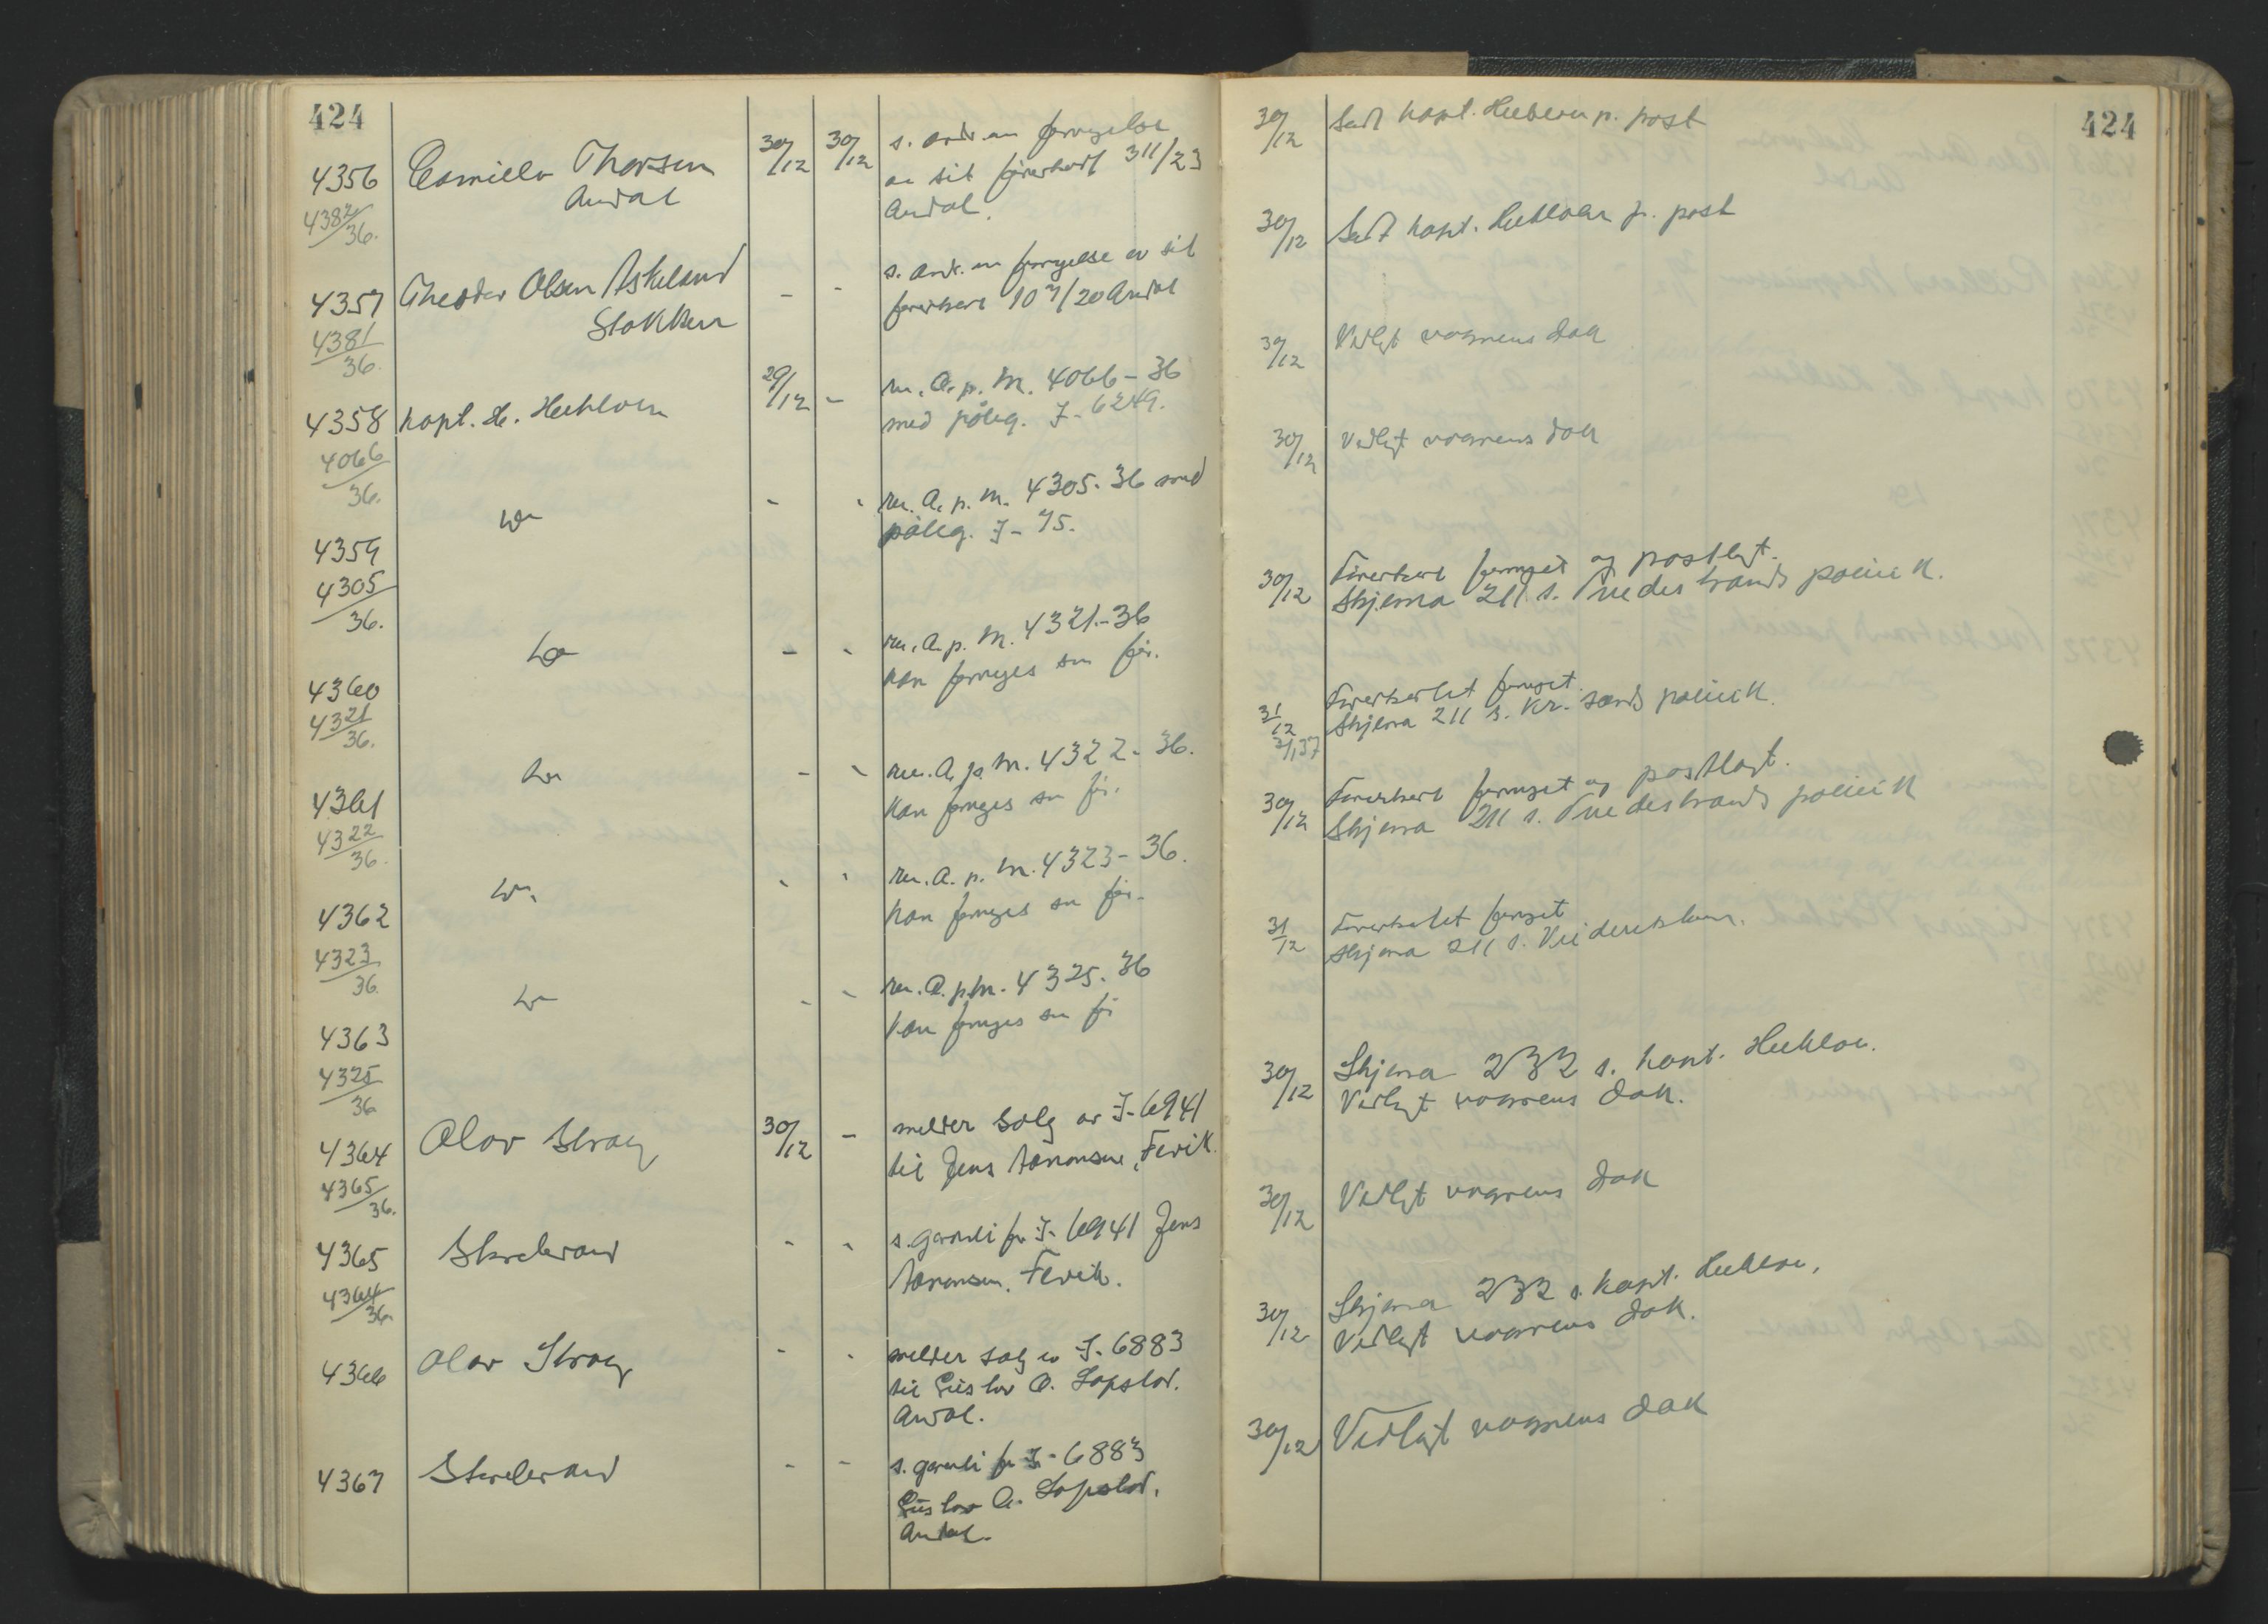 424
4356 Camilla Thorsen 30/12 30/12 s. ank. om fornyelse
Arendal av sit førerkort 311/23
4382/36. Arendal.
4357 Theodor Olsen Askeland - - s. ank. om fornyelse av sit
Stokken førerkort 107/20 Arendal
4381/36.
4358 Kapt. H. 29/12 - m. A. p. M. 4066-36
4066/36. med påteg. I-6249.
4359 Do - - m. A. p. M. 4305-36 med
4305/36. påteg. I-75.
4360 Do - - m. A. p. M. 4321-36
4321/36. kan fornyes som før.
4361 Do - - m. A. p. M. 4322-36.
4322/36. kan fornyes som før.
4362 Do. - - m. A. p. M. 4323-36.
4323/36. kan fornyes som før.
4363 Do - - m. A. p. M. 4325-36
4325/36 kan fornyes som før
4364 Olav Stray 30/12 - melder salg av I-6941
4365/36. til Jens Aanonsen, Fevik.
4365 Storebrand - - s. garanti for I-6941 Jens
4364/36 Aanonsen, Fevik.
4366 Olav Stray - - melder salg av I-6883
til Gustav A.
Arendal.
4367 Storebrand - - s. garanti for I-6883
Gustav A.
Arendal.
424
30/12 Sendt kapt. p. post
30/12 Sendt kapt. p. post
30/12 Vedlagt vognens dok
30/12 Vedlagt vognens dok
30/12 Førerkort fornyet og postlagt.
Skjema 211 s. Tvedestrands politik.
31/12 Førerkortet fornyet.
2/1 37 Skjema 211 s. Kr. sands politik.
30/12 Førerkort fornyet og postlagt.
Skjema 211 s. Tvedestrands politik
31/12 Førerkortet fornyet
Skjema 211 s.
30/12 Skjema 232 s. kapt.
Vedlagt vognens dok.
30/12 Vedlagt vognens dok
30/12 Skjema 232 s. kapt.
Vedlagt vognens dok.
30/12 Vedlagt vognens dok